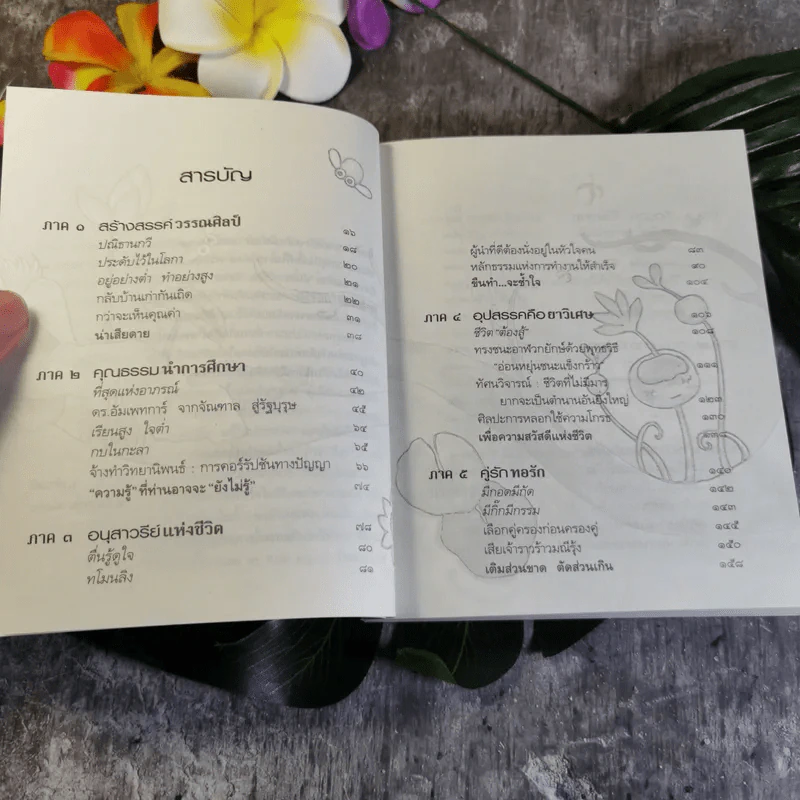 สารบัญ
ภาค ๑ สร้างสรรค์วรรณศิลป์ ๑๖
ปณิธานกวี ๑๘
ประดับไว้ในโลกา ๒๐
อยู่อย่างต่ำ ทำอย่างสูง ๒๑
กลับบ้านเก่ากันเถิด ๒๒
กว่าจะเห็นคุณค่า ๓๑
น่าเสียดาย ๓๘
ภาค ๒ คุณธรรมนำการศึกษา ๔๐
ที่สุดแห่งอาภรณ์ ๔๒
ดร.อัมเพทการ์ จากจัณฑาล สู่รัฐบุรุษ ๔๕
เรียนสูง ใจต่ำ ๖๔
กบในกะลา ๖๕
จ้างทำวิทยานิพนธ์ : การคอร์รัปชันทางปัญญา ๖๖
"ความรู้" ที่ท่านอาจจะ "ยังไม่รู้" ๗๔
ภาค ๓ อนุสาวรีย์แห่งชีวิต ๗๘
ตื่นรู้ดูใจ ๘๐
ทโมนลิง ๘๑
ผู้นำที่ดีต้องนั่งอยู่ในหัวใจคน ๘๓
หลักธรรมแห่งการทำงานให้สำเร็จ ๙๐
ขืนทำ...จะช้ำใจ ๑๐๔
ภาค ๔ อุปสรรคคือยาวิเศษ ๑๐๖
ชีวิต "ต้องสู้" ๑๐๘
ทรงชนะอาฬวกยักษ์ด้วยพุทธวิธี
"อ่อนหยุ่นชนะแข็งกร้าว" ๑๑๑
ทัศนวิจารณ์ : ชีวิตที่ไม่มีมาร
ยากจะเป็นตำนานอันยิ่งใหญ่ ๑๒๓
ศิลปะการหลอกใช้ความโกรธ ๑๓๐
เพื่อความสวัสดีแห่งชีวิต ๑๓๘
ภาค ๕ คู่รัก ทอรัก ๑๔๑
มีกอดมีกัด ๑๔๒
มีกิ๊กมีกรรม ๑๔๓
เลือกคู่ครองก่อนครองคู่ ๑๔๕
เสียเจ้าราวร้าวมณีรุ้ง ๑๕๐
เติมส่วนขาด ตัดส่วนเกิน ๑๕๘